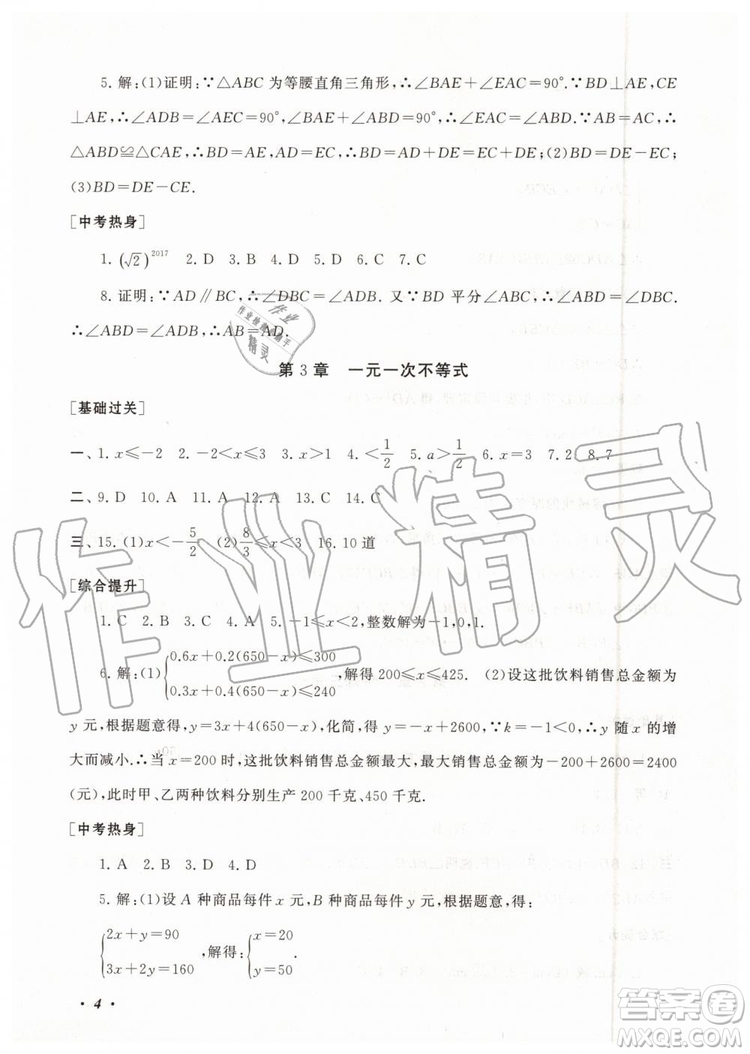 5. 解:(1)证明:∵△ABC为等腰直角三角形,∴∠BAE+∠EAC=90°.∵BD⊥AE,CE
⊥AE,∴∠ADB=∠AEC=90°,∠BAE+∠ABD=90°.∴∠ABD=∠EAC.∵AB=AC,∴
△ABD≌△CAE.∴BD=AE,AD=CE.∵AE=AD+DE,∴BD=DE+CE;(2)BD=DE-CE;
(3)BD=DE-CE.
[中考热身]
1. (√2)^2017 2. D 3. B 4. D 5. D 6. C 7. C
8. 证明:∵AD∥BC,∴∠ADB=∠DBC. 又∵BD平分∠ABC,∴∠ABD=∠DBC.
∴∠ABD=∠ADB.∴AB=AD.
第3章 一元一次不等式
[基础过关]
一、1. x≤-2 2. -2<x≤3 3. x>1 4. <1/2 5. a>1/2 6. x=3 7. 2 8. 7
二、9. D 10. A 11. A 12. A 13. C 14. A
三、15. (1)x<-5/2 (2)8/3≤x≤3 16. 10道
[综合提升]
1. C 2. B 3. C 4. A 5. -1≤x<2,整数解为-1,0,1.
6. 解:(1){0.6x+0.2(650-x)≤300 0.3x+0.4(650-x)≤240,解得200≤x≤425. (2)设这批饮料销售总金额为
y元,根据题意得,y=3x+4(650-x),化简,得y=-x+2600,∵k=-1<0,∴y随x的增
大而减小.∴当x=200时,这批饮料销售总金额最大,最大销售总金额为-200+2600=2400
(元),此时甲、乙两种饮料分别生产200千克、450千克.
[中考热身]
1. A 2. B 3. D 4. D
5. 解:(1)设A种商品每件x元,B种商品每件y元,根据题意,得:
{2x+y=90 3x+2y=160,解得:{x=20 y=50.
· 4 ·
作业精灵
答案圈
MXQE.COM